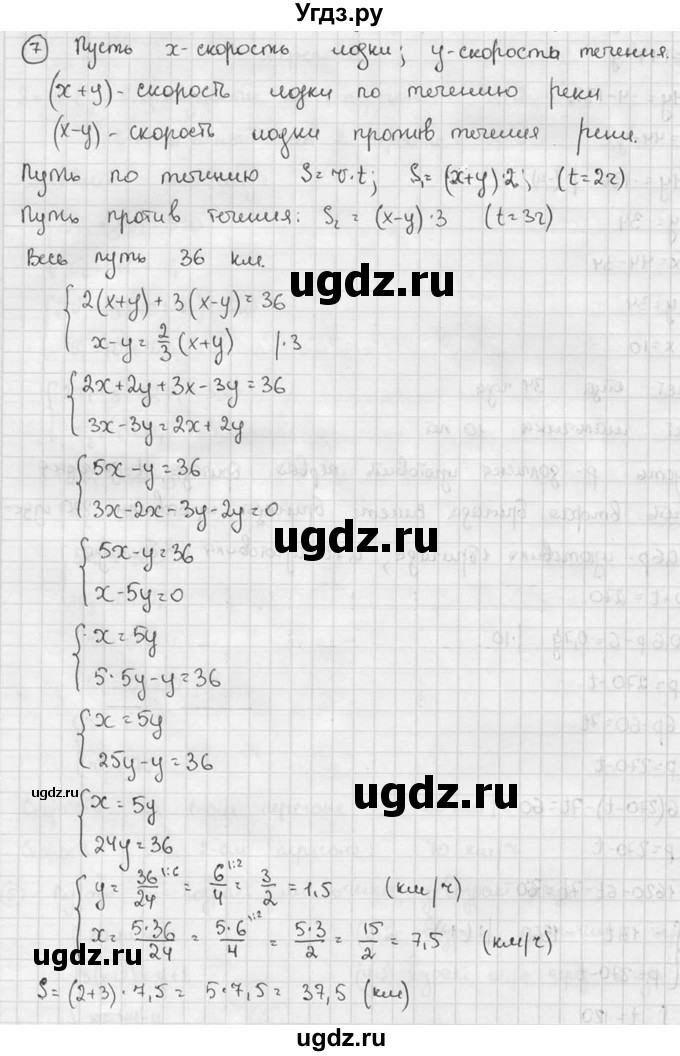 Угдз.ру
⑦ Пусть x-скорость лодки; y-скорость течения.
(x+y) - скорость лодки по течению реки
(x-y) - скорость лодки против течения реки.
Путь по течению S=v·t; S₁=(x+y)·2; (t=2ч)
Путь против течения: S₂=(x-y)·3 (t=3ч)
Весь путь 36 км.
ugdz.ru
{2(x+y)+3(x-y)=36
x-y=2/3(x+y) |·3
{2x+2y+3x-3y=36
3x-3y=2x+2y
{5x-y=36
3x-2x-3y-2y=0
ugdz.ru
{5x-y=36
x-5y=0
{x=5y
5·5y-y=36
{x=5y
25y-y=36
ugdz.ru
ugdz.ru
{x=5y
24y=36
{y=36/24 ^(1:6) = 6/4 ^(1:2) = 3/2 = 1,5 (км/ч)
x=5·36/24 = 5·6/4 ^(1:2) = 5·3/2 = 15/2 = 7,5 (км/ч)
S=(2+3)·7,5= 5·7,5= 37,5 (км)
ugdz.ru